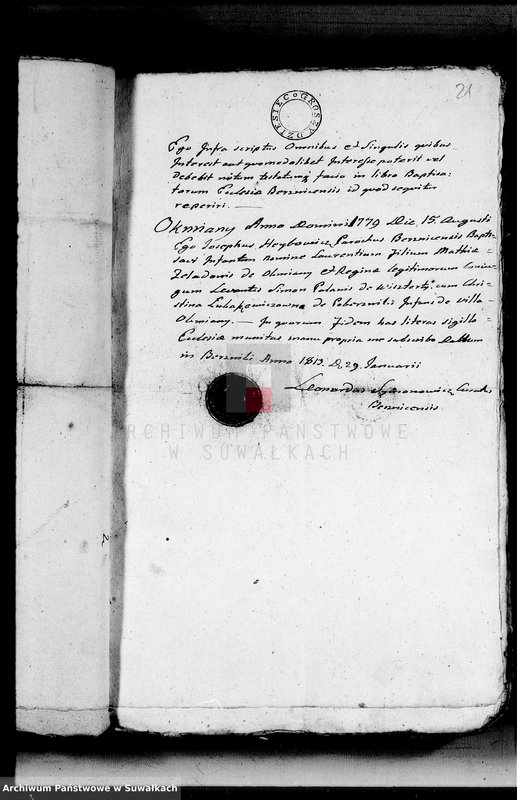 21
DZIESIĘC GROSZY
Ego Infra scriptus Omnibus et Singulis quibus
Interest aut quomodolibet Interesse poterit vel
Debebit notum testatumq facio in libro Baptisa-
torum Eclesia Berznicensis id quod sequitur
reperiri. —
Okmiany Anno Domini 1779 Die 15. Augusti
Ego Josephus Parochus Berznicensis Bapti-
savi Infantem nomine Laurentium Filium Mathia
de Okmiany et Regina legitimorum Coniu-
gum Levantes Simon de cum Chri-
stina de Infans de villa
Okmiany. — In quorum Fidem has literas sigillo
Eclesiæ munitas manu propria me subscribo Dattum
in Berzniki Anno 1813. D. 29. Januarii
Leonardus Curatus
Bernicensis
ARCHIWUM PAŃSTWOWE
W SUWAŁKACH
Archiwum Państwowe w Suwałkach